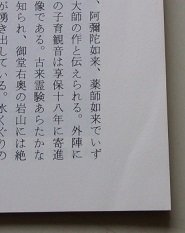 、阿彌陀如来、薬師如来でいず
大師の作と伝えられる。外陣に
の子育観音は享保十八年に寄進
像である。古来霊験あらたかな
知られ、御堂右奥の岩山には絶
が湧き出している。水くぐりの